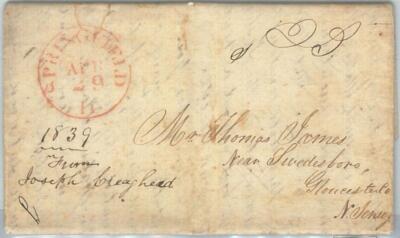 SPRINGFIELD
APR
29
1839
From
Joseph Creaghead
Mr. Thomas James
Near Swedesboro,
Gloucester Co
N. Jersey